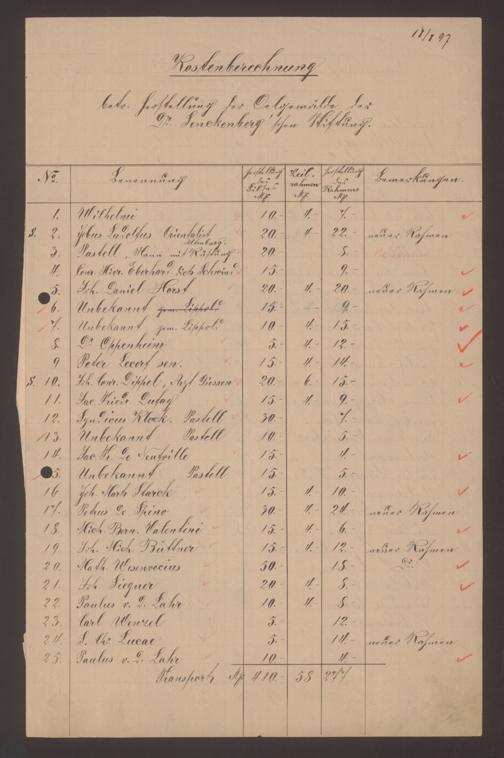 18/8 97
Kostenberechnung
betr. Herstellung der Oelgemälde der
Dr. Senckenberg'schen Stiftung.
No. Benennung Herstellung des Bildes Mk. Keil-rahmen Mk. Herstellung des Rahmens Mk. Bemerkungen.
1. Wilhelmi 10.- 4.- 7.-
S. 2. Jobus Ludolfus Orientalist 20.- 4.- 22.- neuer Rahmen
3. Pastell, Mann mit Rüstung 20.- 8.-
4. Conr. Hier. Eberhard gen. Schwind 15.- 9.-
5. Joh. Daniel Horst 20.- 4.- 20.- neuer Rahmen
6. Unbekannt gem. Lippold 15.- - 9.-
7. Unbekannt gem. Lippold 10.- 4.- 15.-
8. Dr. Oppenheim 5.- 4.- 12.-
9. Peter sen. 15.- 4.- 14.-
S. 10. Joh. Conr. Dippel, Arzt Giessen 20.- 6.- 15.-
11. Jac. Friedr. Dufay 15.- 4.- 9.-
12. Syndicus Klock. Pastell 30.- 7.-
13. Unbekannt Pastell 10.- 5.-
14. Jac. Fr. De Neufville 15.- 4.-
15. Unbekannt Pastell 15.- 5.-
16. Joh. Hart. Starck 15.- 4.- 10.-
17. Petrus De Spina 30.- 4.- 24.- neuer Rahmen
18. Mich. Bern. Valentini 15.- 4.- 6.-
19. Joh. Mich. Büttner 15.- 4.- 12.- neuer Rahmen
20. Math. Wesenvecius 50.- 18.- do.
21. Joh. Siegner 20.- 4.- 8.-
22. Paulus v. d. Lahr 10.- 4.- 8.-
23. Carl Wenzel 5.- 12.-
24. S. Chr. Lucae 5.- 14.- neuer Rahmen
25. Paulus v. d. Lahr 10.- 4.-
Transport Mk. 410.- 58 277